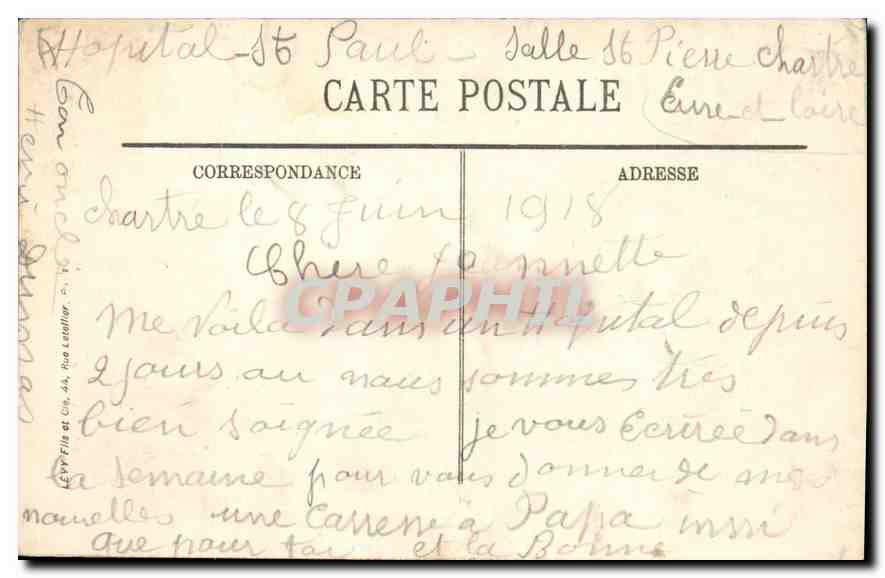 Hopital St Paul - Salle St Pierre Chartre
Eure et loire
CARTE POSTALE
CORRESPONDANCE
ADRESSE
Chartre le 8 Juin 1918
Chere Jeannette
CPAPHIL
Me Voila dans un Hopital depuis
2 jours ou nous sommes très
bien soignée je vous Ecrirée dans
la semaine pour vous donner de mes
nouvelles une Carresse a Papa inssi
que pour toi et la Bonne
Ton oncle
Henri
LEVY Fils et Cie, 44, Rue Letellier